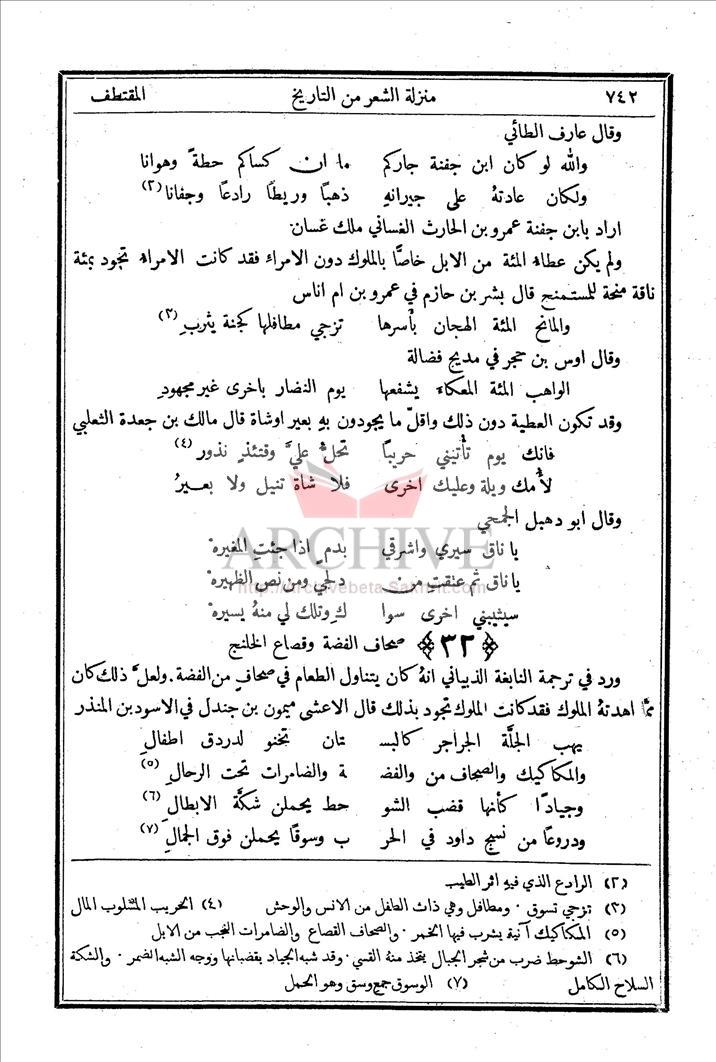 ٧٤٢ منزلة الشعر من التاريخ المقتطف
وقال عارف الطائي
والله لو كان ابن جفنة جاركم ما ان كساكم حطة وهوانا
ولكان عادتهُ على جيرانهِ ذهبًا وريطًا رادعًا وجفانا (٢)
اراد بابن جفنة عمرو بن الحارث الغساني ملك غسان
ولم يكن عطاء المئة من الابل خاصًّا بالملوك دون الامراء فقد كانت الامراء تجود بمئة
ناقة منحة للمستمنح قال بشر بن حازم في عمرو بن ام اناس
والمانح المئة الهجان بأسرها تزجي مطافلها كجنة يثربِ (٣)
وقال اوس بن حجر في مديح فضالة
الواهب المئة المعكاء يشفعها يوم النضار باخرى غير مجهودِ
وقد تكون العطية دون ذلك واقلّ ما يجودون بهِ بعير اوشاة قال مالك بن جعدة الثعلبي
فانك يوم تأتيني حريبًا تحلُّ عليَّ وقتئذٍ نذور (٤)
لأمك ويلة وعليك اخرى فلا شاةً تنيل ولا بعيرُ
وقال ابو دهبل الجمحي
يا ناق سيري واشرقي بدم اذا جئت المغيره
يا ناق ثم عنقت من دلجي ومن نص الظهيره
سيثيبني اخرى سوا كِ وتلك لي منهُ يسيره
﴿٣٢﴾ صحاف الفضة وقصاع الخلنج
ورد في ترجمة النابغة الذبياني انهُ كان يتناول الطعام في صحافٍ من الفضة. ولعلَّ ذلك كان
ممَّا اهدتهُ الملوك فقد كانت الملوك تجود بذلك قال الاعشى ميمون بن جندل في الاسود بن المنذر
يهب الجلَّة الجراجر كالبسـ ـتان تخنو لدردق اطفالِ
والمكاكيك والصحاف من والفضـ ـة والضامرات تحت الرحالِ (٥)
وجيادًا كأنها قضب الشو حط يحملن شكَّة الابطالِ (٦)
ودروعًا من نسج داود في الحر ب وسوقًا يحملن فوق الجمالِ (٧)
(٢) الرادع الذي فيهِ اثر الطيب
(٣) تزجي تسوق . ومطافل وهي ذات الطفل من الانس والوحش (٤) الحريب المسلوب المال
(٥) المكاكيك آنية يشرب فيها الخمر . والصحاف القصاع والضامرات النجب من الابل
(٦) الشوحط ضرب من شجر الجبال يتخذ منهُ القسي . وقد شبه الجياد بقضبانها ووجه الشبه الضمر . والشكة
السلاح الكامل (٧) الوسوق جمع وسق وهو الحمل
ARCHIVE
http://archivebeta.Sakhrit.com